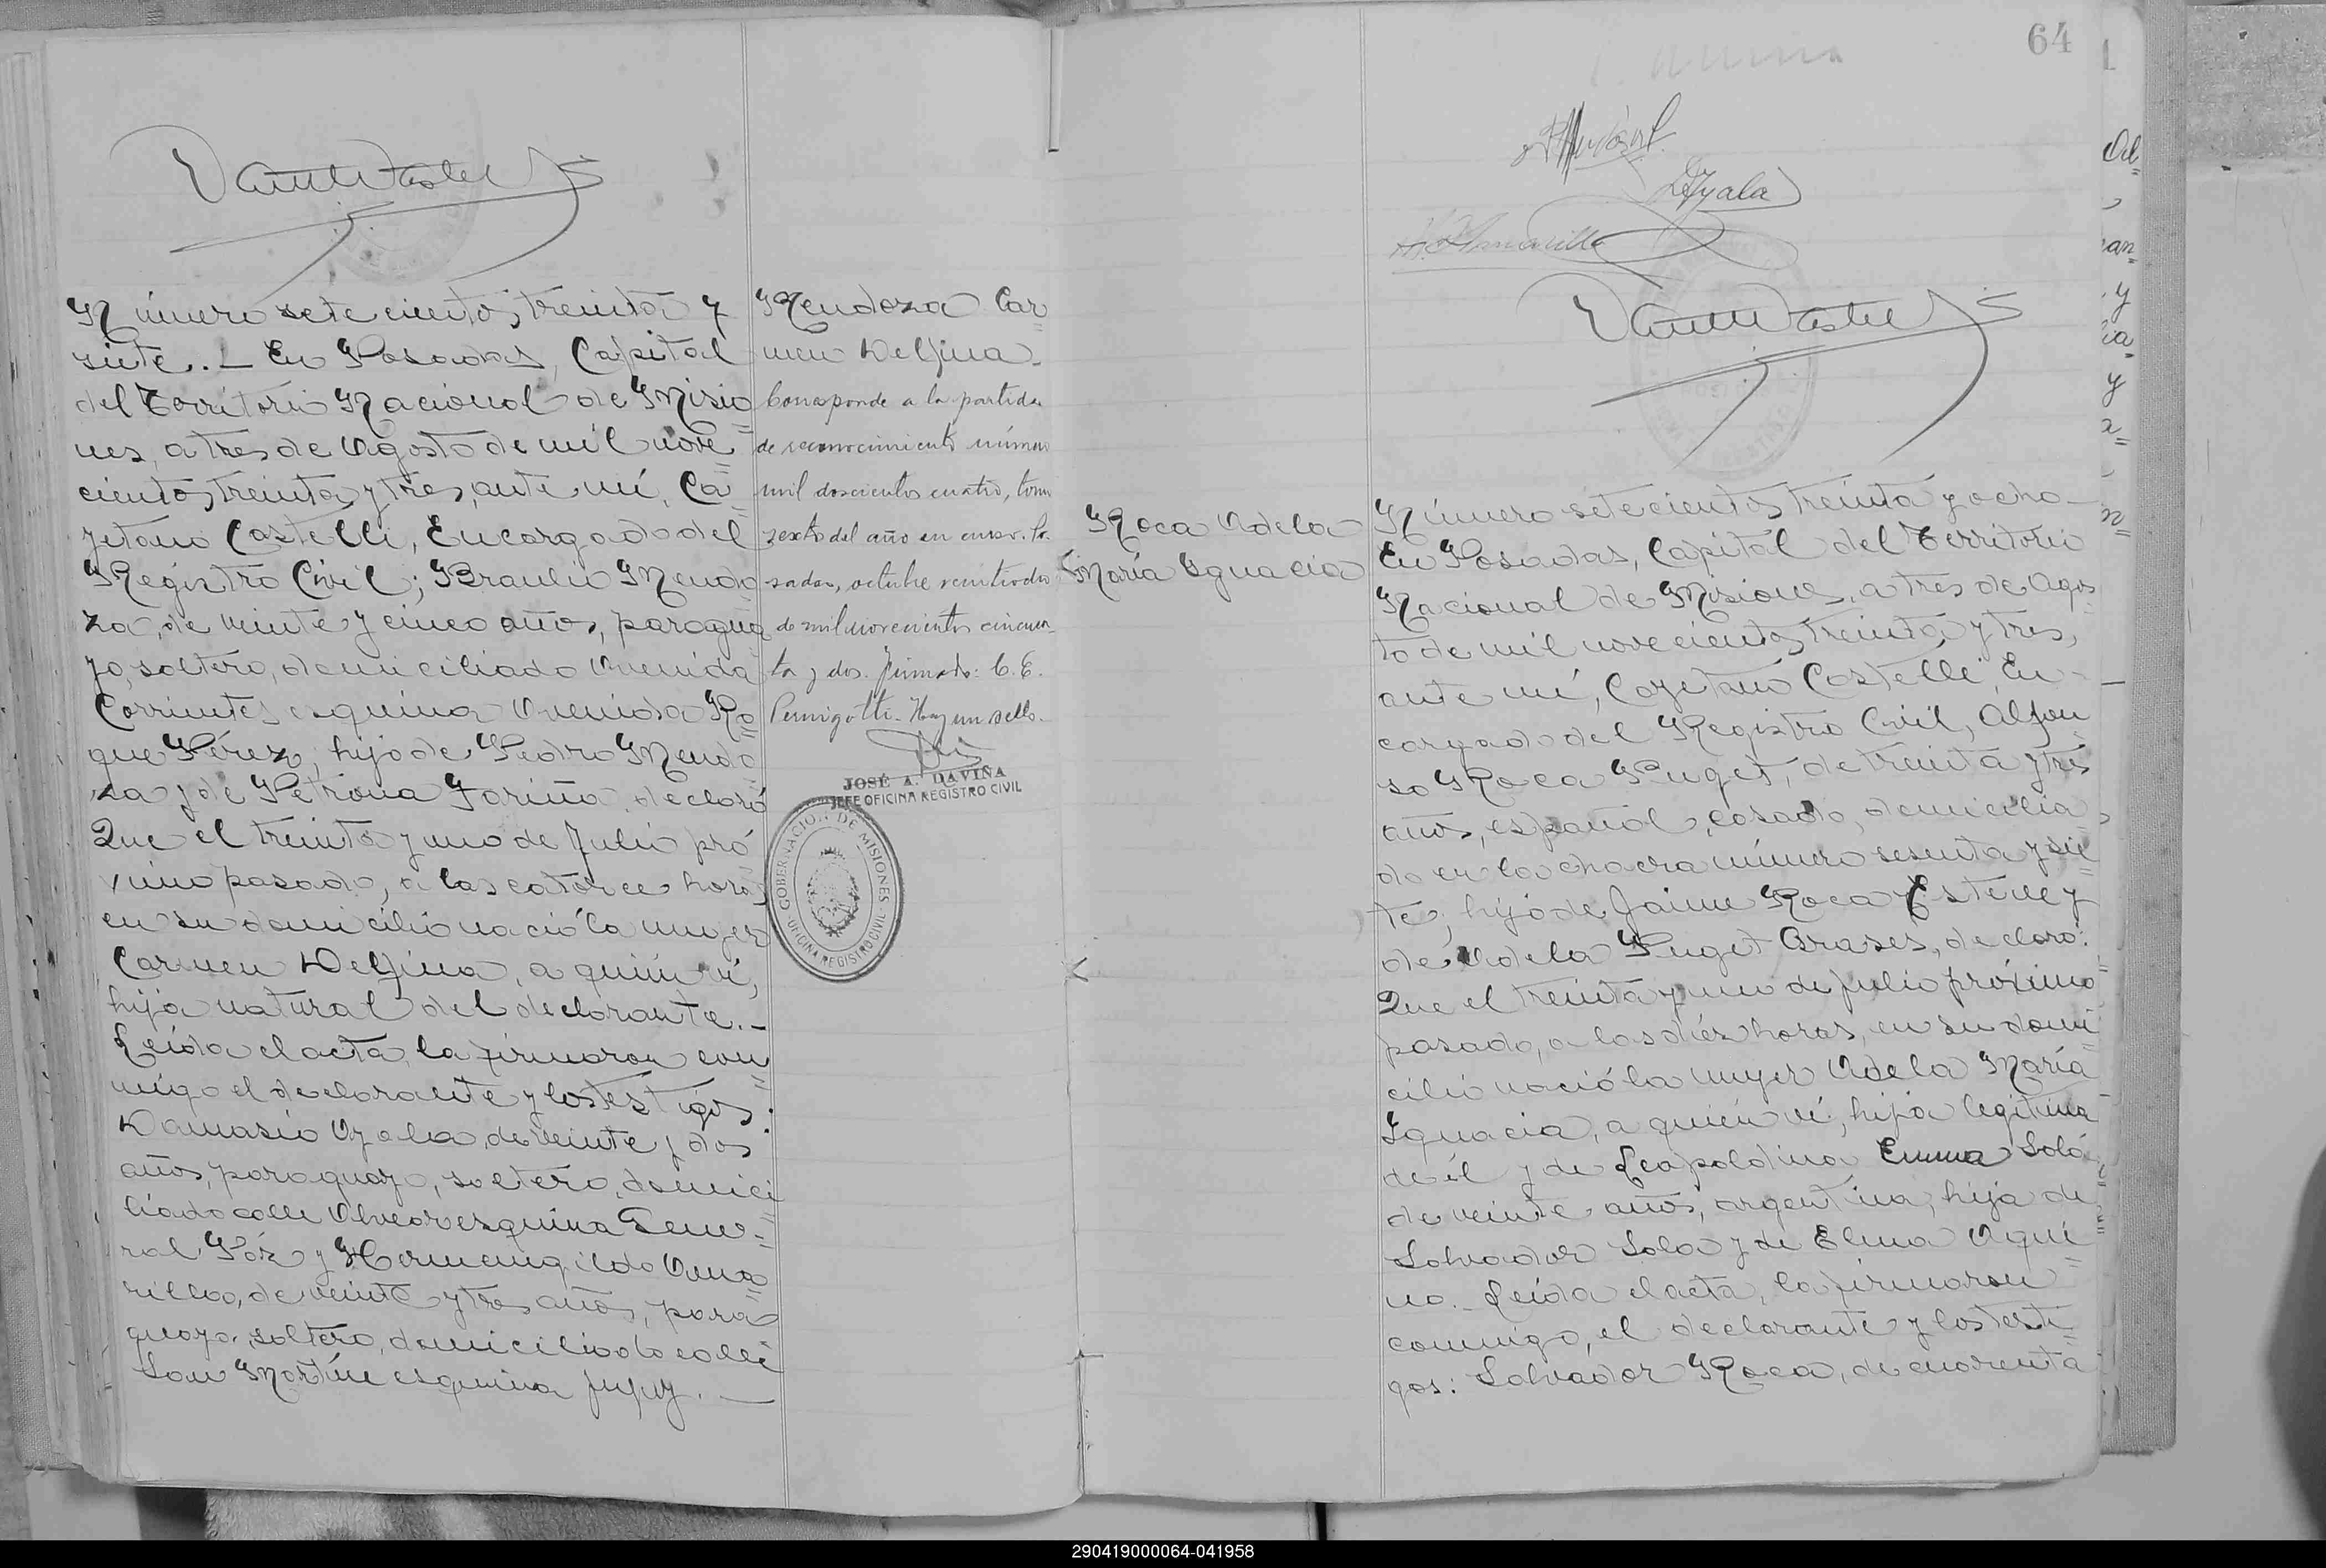 Número sete cientos treinta y
siete. — En Posadas, Capital
del Territorio Nacional de Misio=
nes, a tres de Agosto de mil nove=
cientos treinta y tres, ante mí, Ca=
yetano Castelli, Encargado del
Registro Civil; Braulio Mendo
za, de veinte y cinco años, paragua=
yo, soltero, domiciliado Avenida
Corrientes esquina Avenida Ro=
que Pérez, hijo de Pedro Mendo=
za y de Petrona Fariña, declaró
Que el treinta y uno de Julio pró=
ximo pasado, a las catorce horas
en su domicilio nació la mujer
Carmen Delfina, a quien ví,
hija natural del declarante. —
Leída el acta, la firmaron con=
migo el declarante y los testigos:
Damasio Ayala, de veinte y dos
años, paraguayo, soltero, domici=
liado calle Alvear esquina Gene=
ral Páz y Hermenegildo Ama=
rilla, de veinte y tres años, para=
guayo, soltero, domiciliado calle
San Martín esquina Jujuy. —
Mendoza Car=
men Delfina
Corresponde a la partida
de reconocimiento número
mil doscientos cuatro, tomo
sexto del año en curso. Po-
sadas, octubre veintidos
de mil novecientos cincuen-
ta y dos. Firmado: C. E.
Pernigotti. Hay un sello.
JOSÉ A. DAVIÑA
JEFE OFICINA REGISTRO CIVIL
GOBERNACION DE MISIONES
OFICINA REGISTRO CIVIL
64
D Ayala
H. Amarilla
Roca Adela
María Ignacia
Número setecientos treinta y ocho —
En Posadas, Capital del Territorio
Nacional de Misiones, a tres de Agos=
to de mil novecientos treinta y tres,
ante mí, Cayetano Castelli, En=
cargado del Registro Civil, Alfon
so Roca Puget, de treinta y tres
años, español, casado, domicilia=
do en la chacra número sesenta y sie=
te, hijo de Jaime Roca Esteve y
de Adela Puget Arases, declaró:
Que el treinta y uno de Julio próximo
pasado, a las diez horas, en su domi=
cilio nació la mujer Adela María
Ignacia, a quien ví, hija legítima
de él y de Leopoldina Emma Solá
de veinte años, argentina, hija de
Salvador Sola y de Elena Aqui=
no. — Leída el acta, la firmaron
conmigo, el declarante y los testi=
gos: Salvador Roca, de cuarenta
290419000064-041958